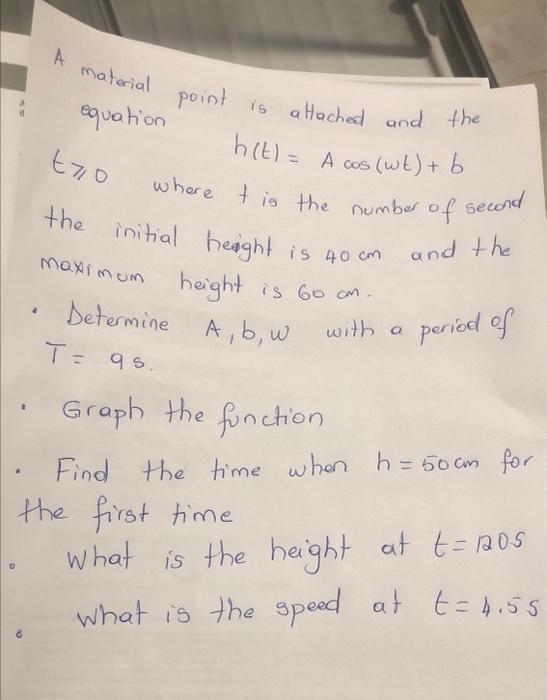 A material point is attached and the
equation
h(t) = A cos(wt) + b
t⩾0 where t is the number of second
the initial height is 40 cm and the
maximum height is 60 cm.
• Determine A, b, w with a period of
T = 9 s.
• Graph the function
• Find the time when h = 50 cm for
the first time
• what is the height at t = 120s
• what is the speed at t = 4.5s